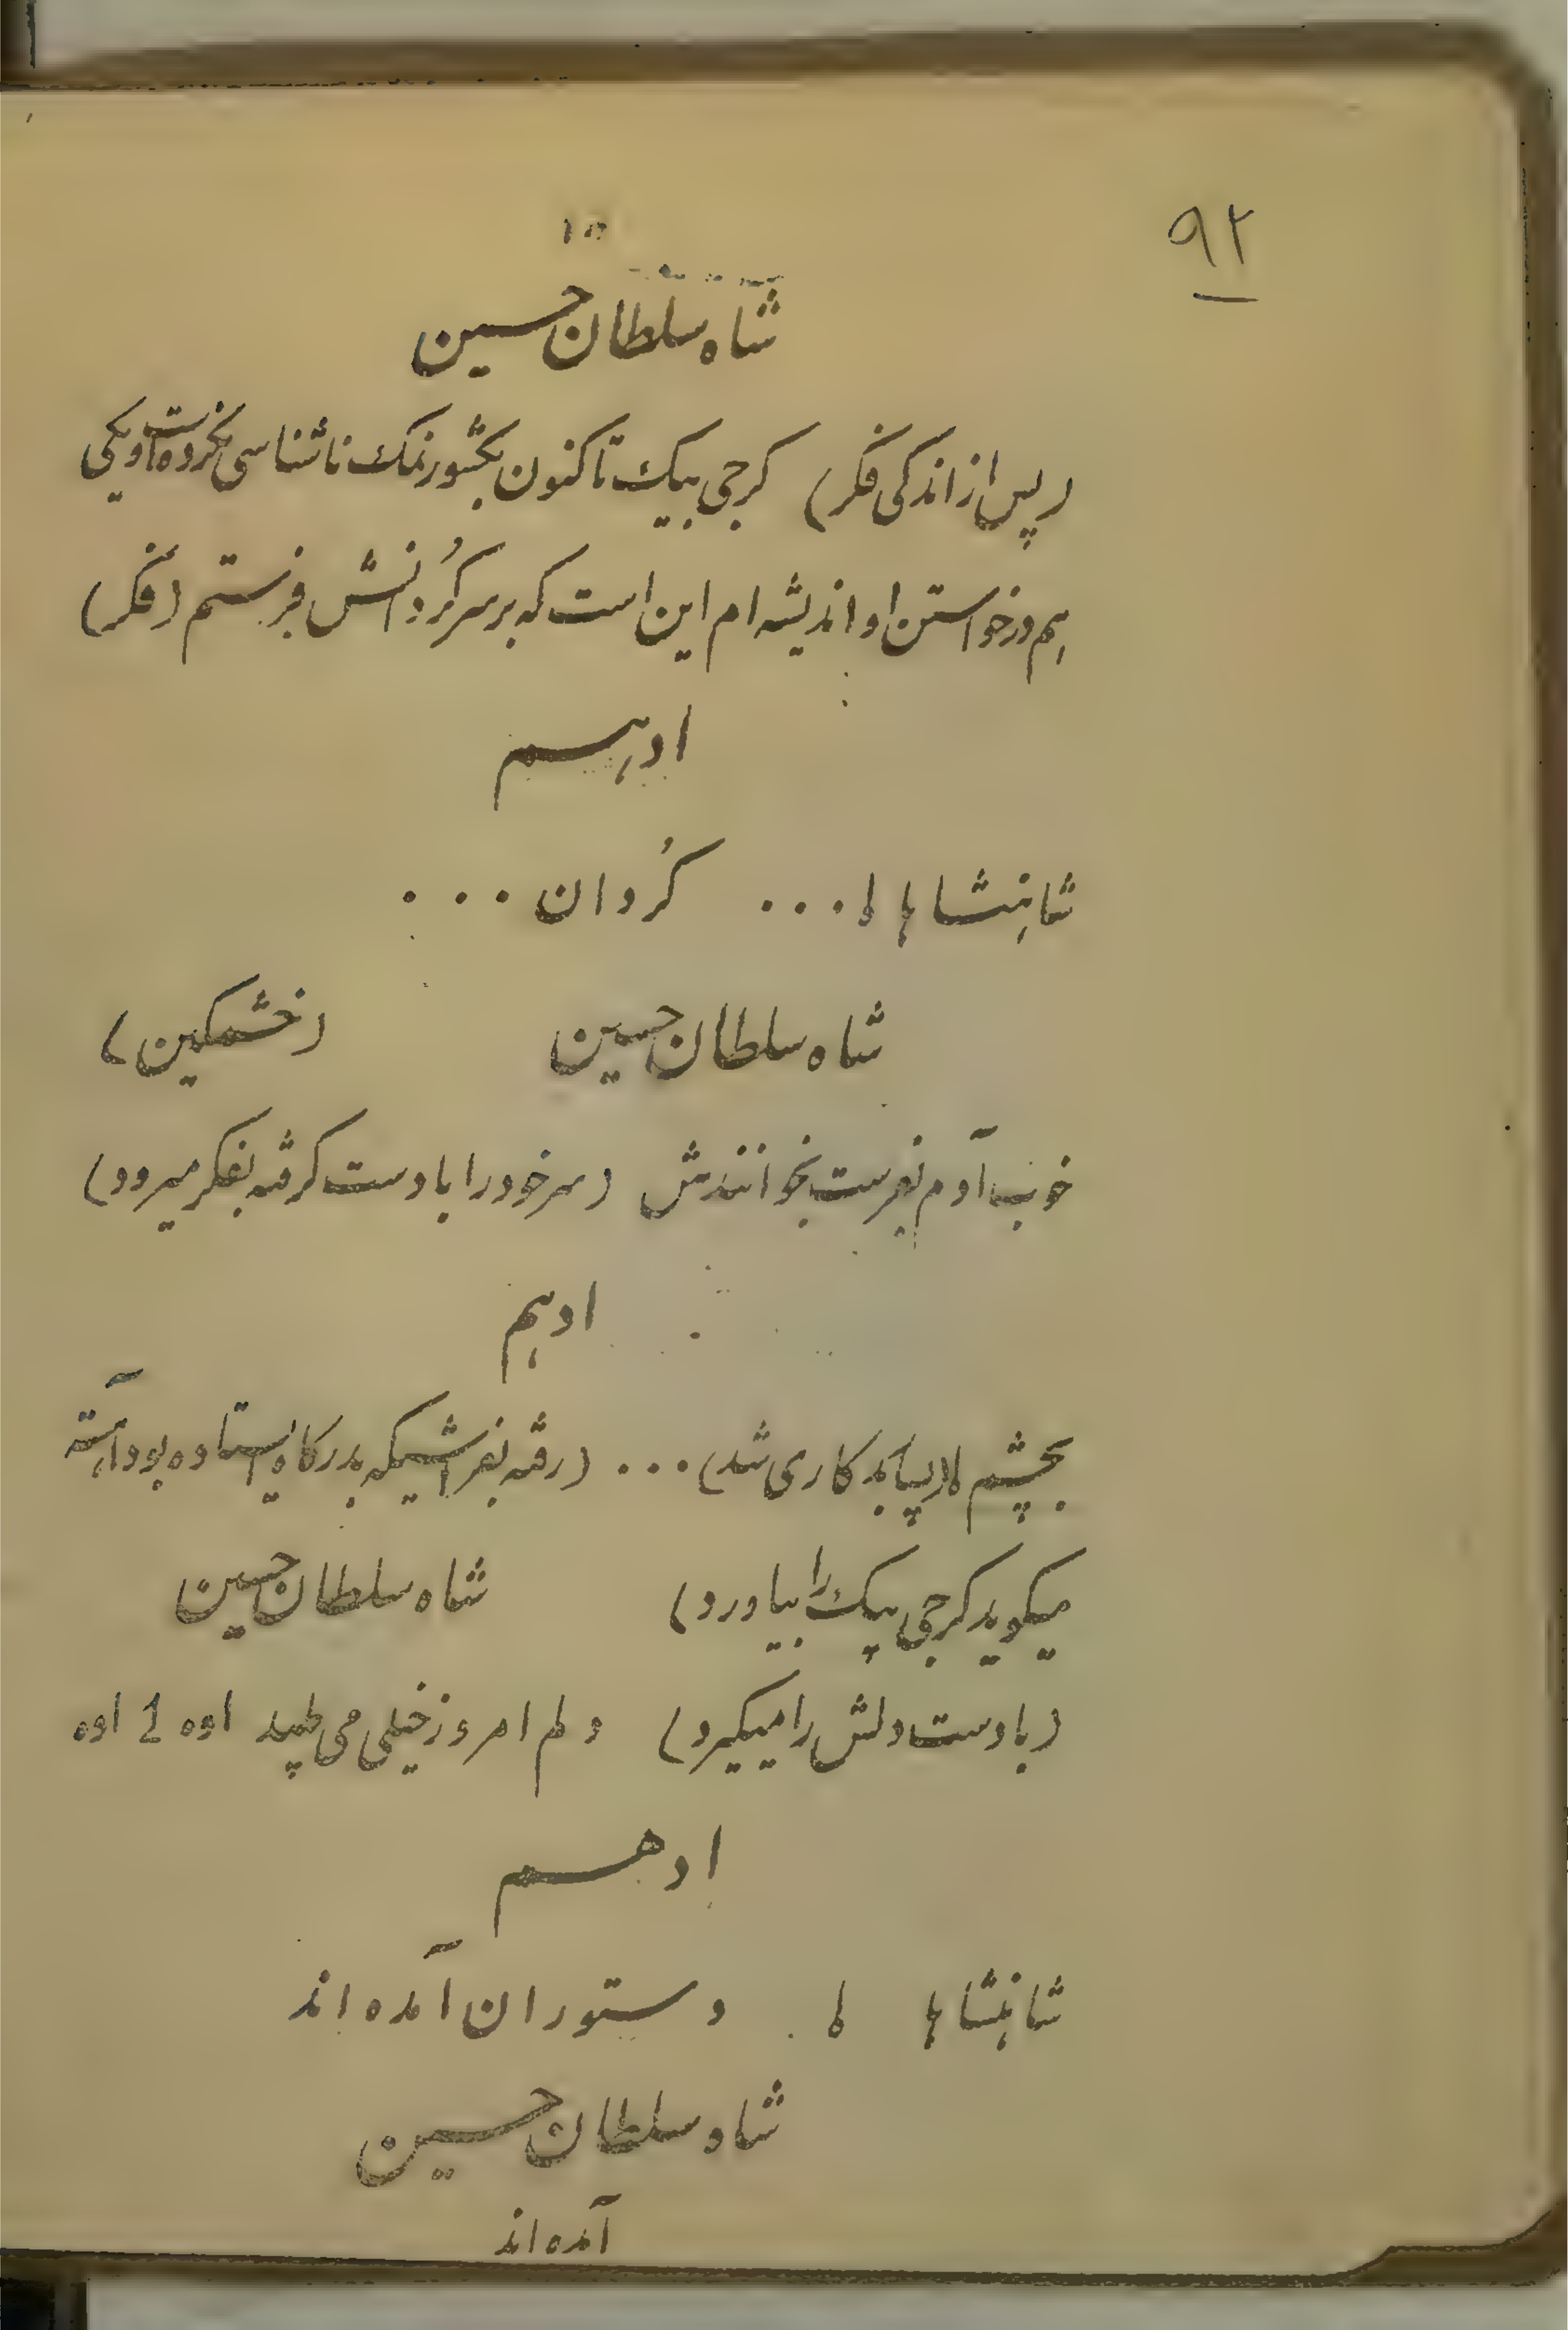 ۹۲
شاه سلطان حسین
(پس از اندکی فکر) کرجی بیک تاکنون بکشور نمک ناشناسی نکرده است و یکی
هم درخواستن او اندیشه ام این است که بر سر کُردانش فرستم (فکر)
ادهم
شاهنشاها !... کُردان ...
شاه سلطان حسین (خشمکین)
خوب آدم بفرست بخوانندش (سر خود را با دست کرفته بفکر میرود)
ادهم
بچشم کاری شد) ... (رفته بفراشیکه بدرکاه ایستاده بود آهسته
میکوید کرجی بیک را بیاورد) شاه سلطان حسین
(با دست دلش را میکیرد) دلم امروز خیلی می طپد اوه ! اوه
ادهم
شاهنشاها ! دستوران آمده اند
شاه سلطان حسین
آمده اند